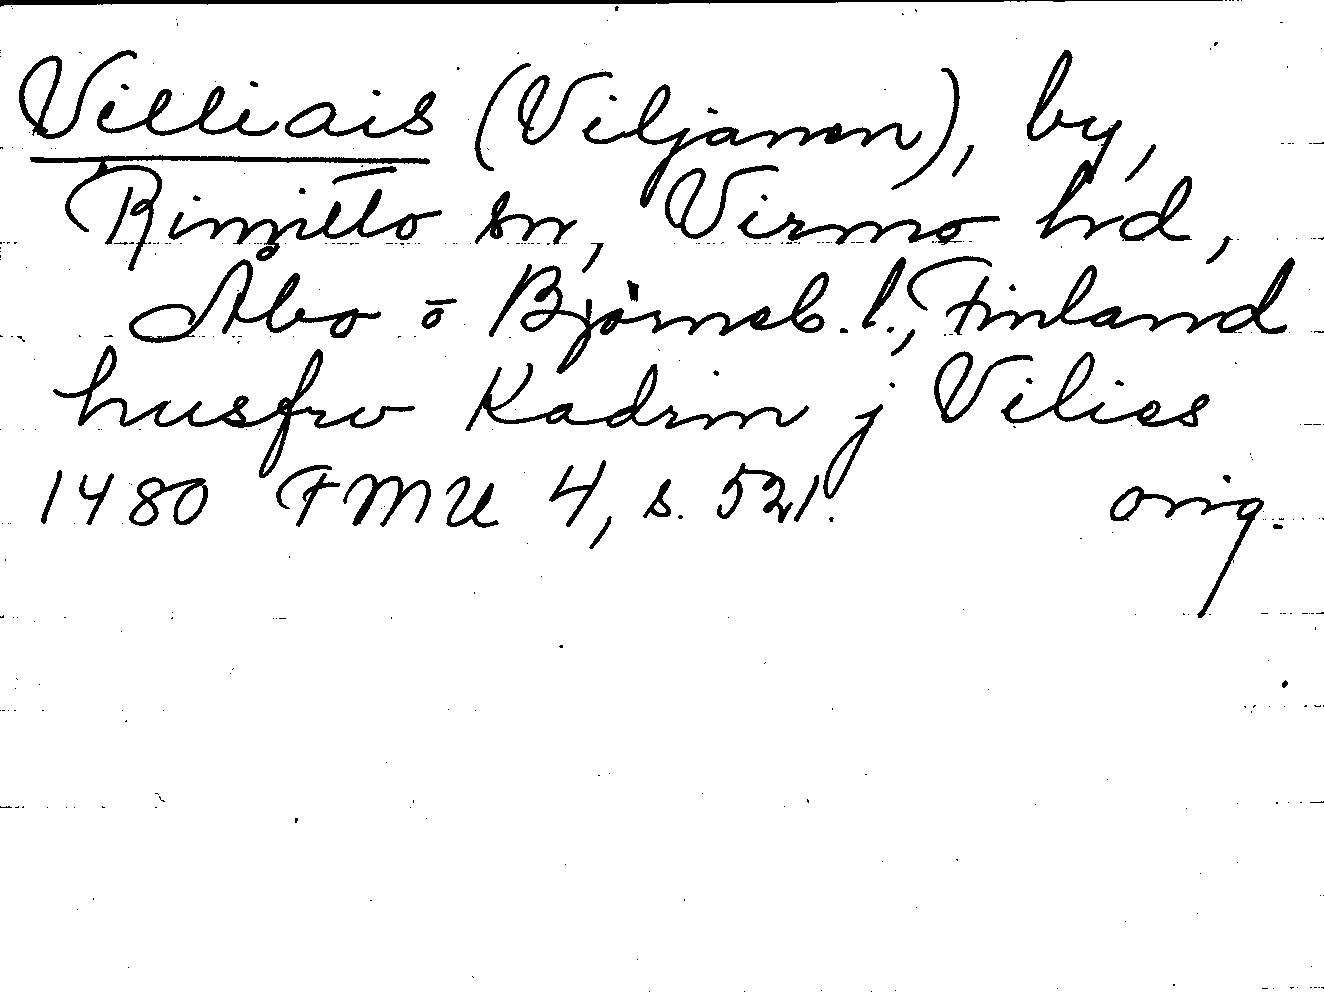 Villiais (Viljanen), by,
Rimitto sn, Virmo hd,
Åbo o Björneb. l., Finland
husfrv Kadrin j Vilies
1480 FMU 4, s. 521. orig.